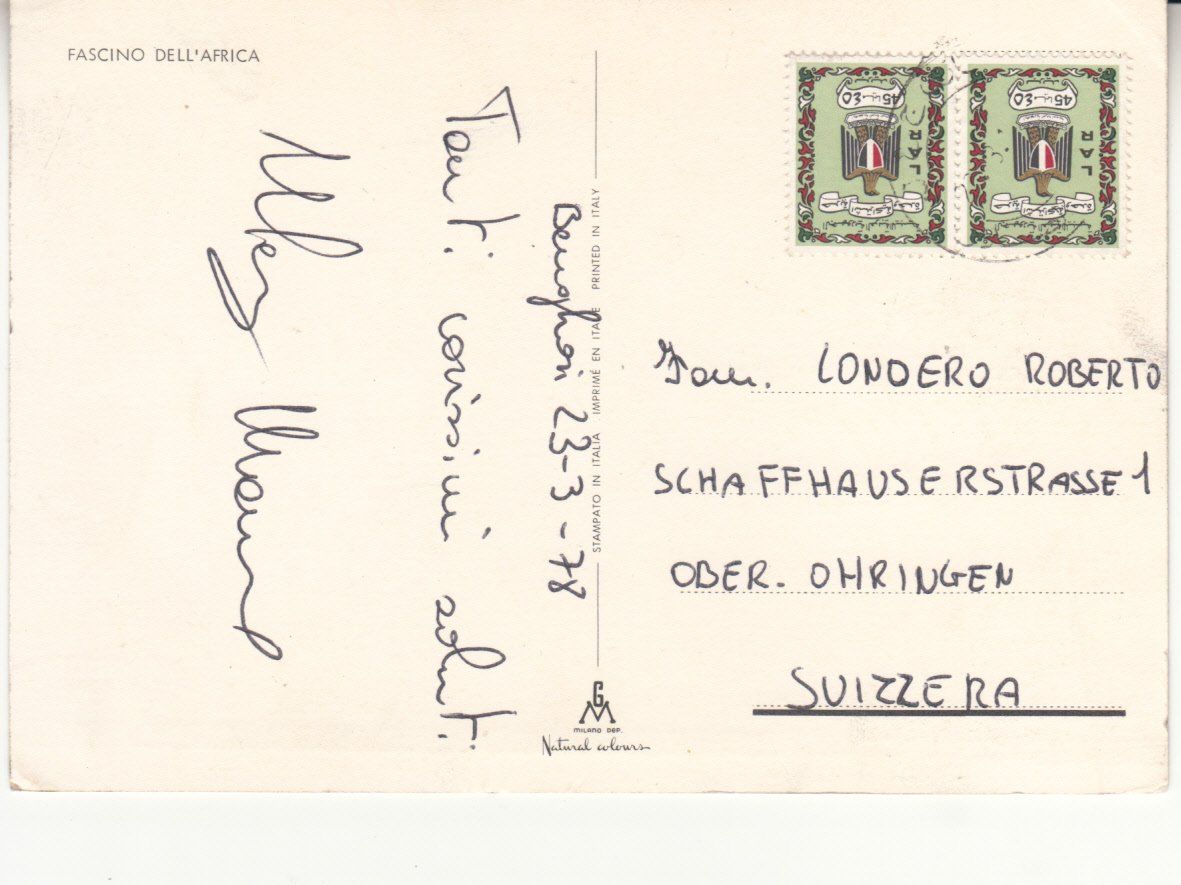 FASCINO DELL'AFRICA
Benghasi 23-3-78
Tanti carissimi saluti
STAMPATO IN ITALIA IMPRIMÉ EN ITALIE PRINTED IN ITALY
45 ٤٥
LAR
45 ٤٥
LAR
Fam. LONDERO ROBERTO
SCHAFFHAUSERSTRASSE 1
OBER. OHRINGEN
SUIZZERA
GM
MILANO DEP.
Natural colours